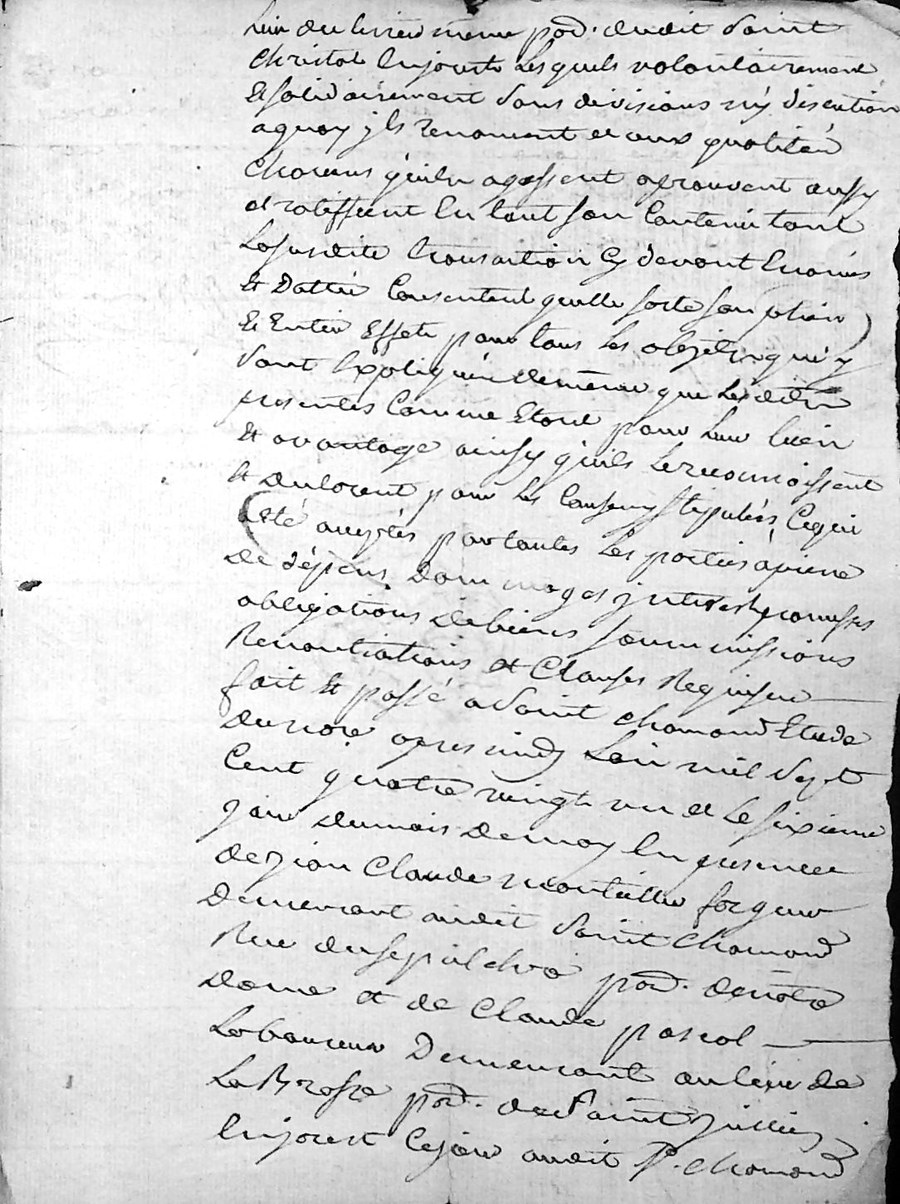 lieu du   même par. dudit Saint
Christot En jarest Lesquels volontairement
Et solidairement Sans divisions ny discution
aquoy ils renoncent et aux qualités
quils agissent aprouvent aussy
et ratiffient En tout son Contenu tant
La susdite transaction Cy devant Enoncée
Et Dattée Consentent quelle sorte son plein
Et Entier Effet pour tous les objets qui y
Sont Expliqués de meme que Lesdites
presentes Comme Etant pour Leur bien
Et avantage ainsy quils Le reconnoissent
Et declarent pour les Causes y stipulées, Ce qui
a Eté aux parties apeine
De dépens, Dommages interets promesses
obligations De biens Soummissions
Renontiations et Clauses Requises
fait Et passé a Saint Chamond Etude
Du nore apres midy Lan mil Sept
Cent quatre vingt un et Le sixieme
jour Du mois De may En presence
De jean Claude forgeur
Demeurant audit Saint Chamond
Rue du sepulchre par. de notre
Dame et de Claude pascal
Laboureur Demeurant au lieu de
La Brosse par. de Saint jullien
En jarest Ce jour audit St. Chamond